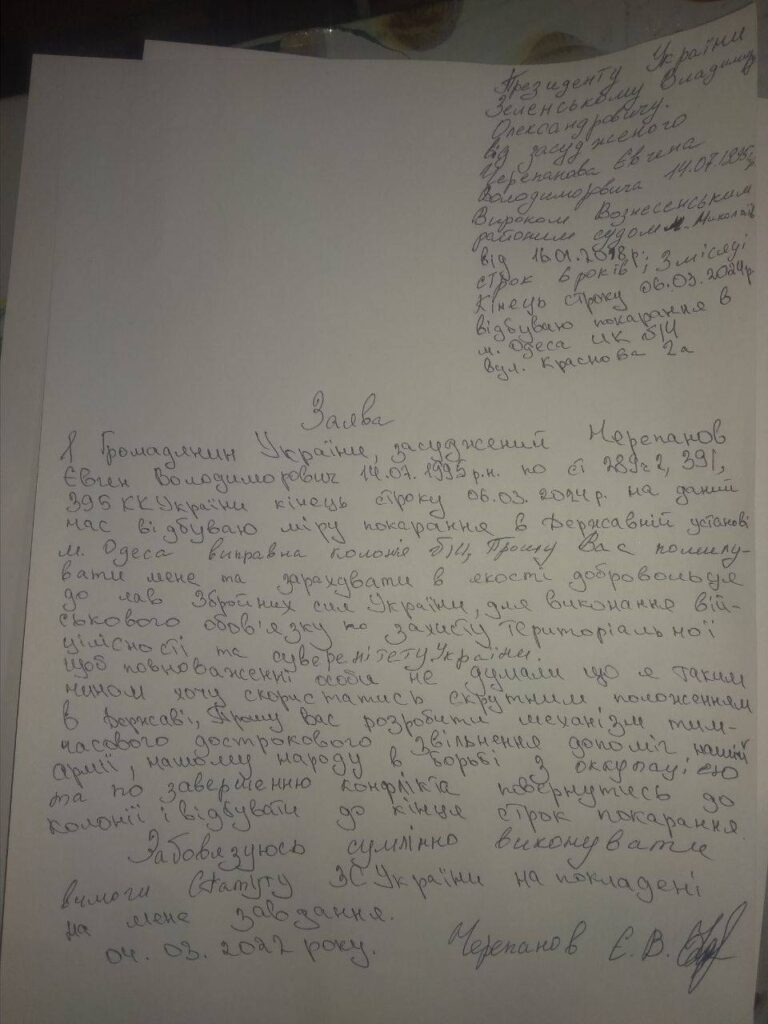 Президенту України
Зеленському Владимиру
Олександровичу.
від засудженого
Черепанова Євгена
Володиморовича 14.07.1995р.
Вироком Вознесенським
районим судом м. Миколаїв
від 16.01.2018р;
строк 6 років, 3 місяці
Кінець строку 06.03.2024р
відбуваю покарання в
м. Одеса ИК б/Ц
вул. Краснова 2а
Заява
Я Громадянин України, засуджений Черепанов
Євген Володиморович 14.07.1995р.н. по ст 289ч2, 391,
395 КК України кінець строку 06.03.2024р. на даний
час відбуваю міру покарання в державній установі
м. Одеса виправна колонія б/Ц, Прошу Вас помилу-
вати мене та зарахувати в якості добровольця
до лав Збройних сил України, для виконання вій-
ськового обов'язку по захисту територіальної
цілісності та суверенітету України.
щоб повноваженні особи не думали що я таким
чином хочу скористатись скрутним положенням
в державі, Прошу вас розробити механізм тим-
часового дострокового звільнення допоміг нашій
армії, нашому народу в борьбі з оккупацією
та по завершенню конфлікта повернутись до
колонії і відбувати до кінця строк покарання.
Забовязуюсь сумлінно виконувати
вимоги Статуту ЗС України на покладені
на мене завдання.
04. 03. 2022 року. Черепанов Є. В.